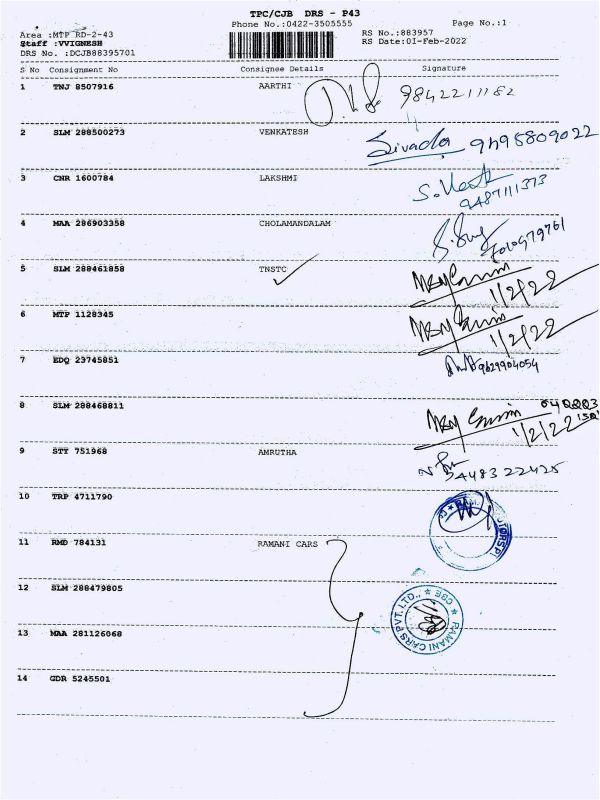 TPC/CJB DRS - P43
Phone No.:0422-3505555 Page No.:1
Area :MTP RD-2-43 RS No.:883957
Staff :VVIGNESH RS Date:01-Feb-2022
DRS No. :DCJB88395701
S No Consignment No Consignee Details Signature
1 TNJ 8507916 AARTHI 9842211182
2 SLM 288500273 VENKATESH 9495809022
3 CNR 1600784 LAKSHMI
9487111373
4 MAA 286903358 CHOLAMANDALAM
5 SLM 288461858 TNSTC
1/2/22
6 MTP 1128345
1/2/22
7 EDQ 23745851 9629904054
8 SLM 288468811
1/2/22
9 STT 751968 AMRUTHA
9448322425
10 TRP 4711790
11 RMD 784131 RAMANI CARS
12 SLM 288479805
RAMANI CARS PVT. LTD., ★ CBE ★
13 MAA 281126068
14 GDR 5245501